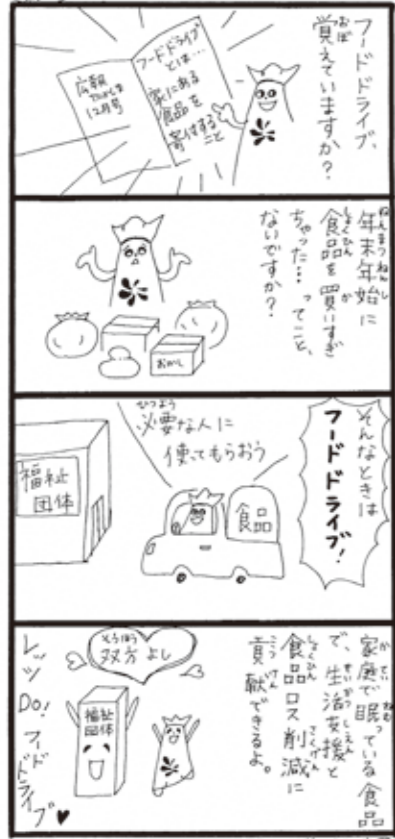 フードドライブ、
覚えていますか？
フードドライブ
とは…
家にある
食品を
寄付する
こと
広報
12月号
年末年始に
食品を買いすぎ
ちゃった… ってこと、
ないですか？
おかし
そんなときは
フードドライブ！
必要な人に
使ってもらおう
食品
福祉
団体
家庭で眠っている食品
で、生活支援と
食品ロス削減に
貢献できるよ。
双方よし
福祉
団体
レッツ
Do！フード
ドライブ♥